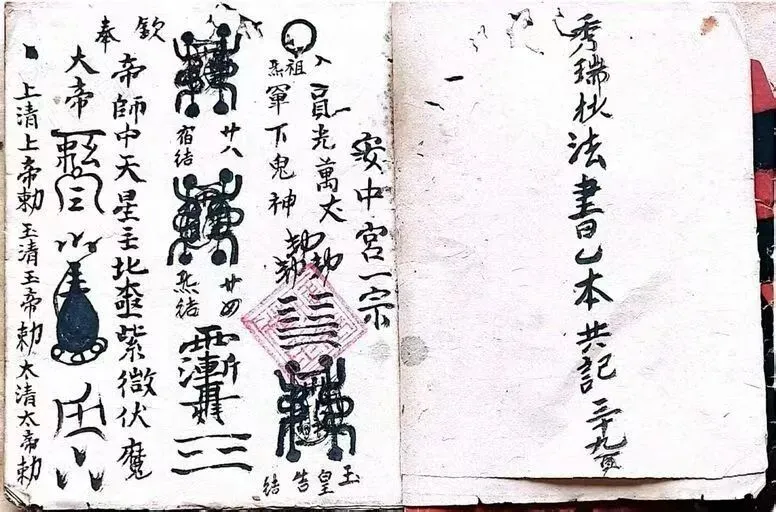 秀瑞杜法書乙本共記三十九頁
安中宮一宗
入貟光萬丈
祖炁
軍下鬼神
玉皇告結
廿八
宿結
廿四
炁結
欽奉
帝師中天星主北極紫微伏魔
大帝
上清上帝勅玉清玉帝勅太清太帝勅